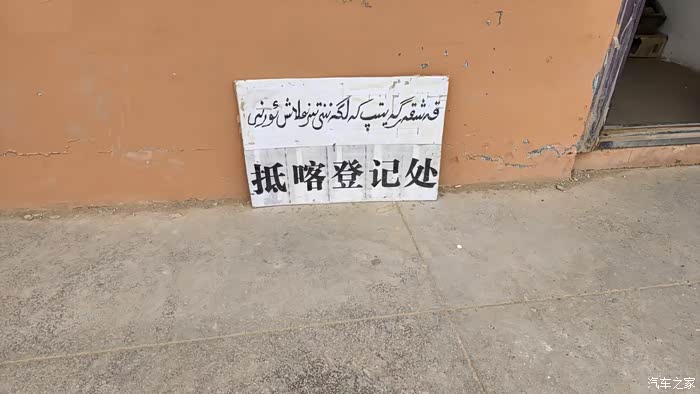 قەشقەرگە يېتىپ كەلگەننى تىزىملاش ئورنى
抵喀登记处
汽车之家